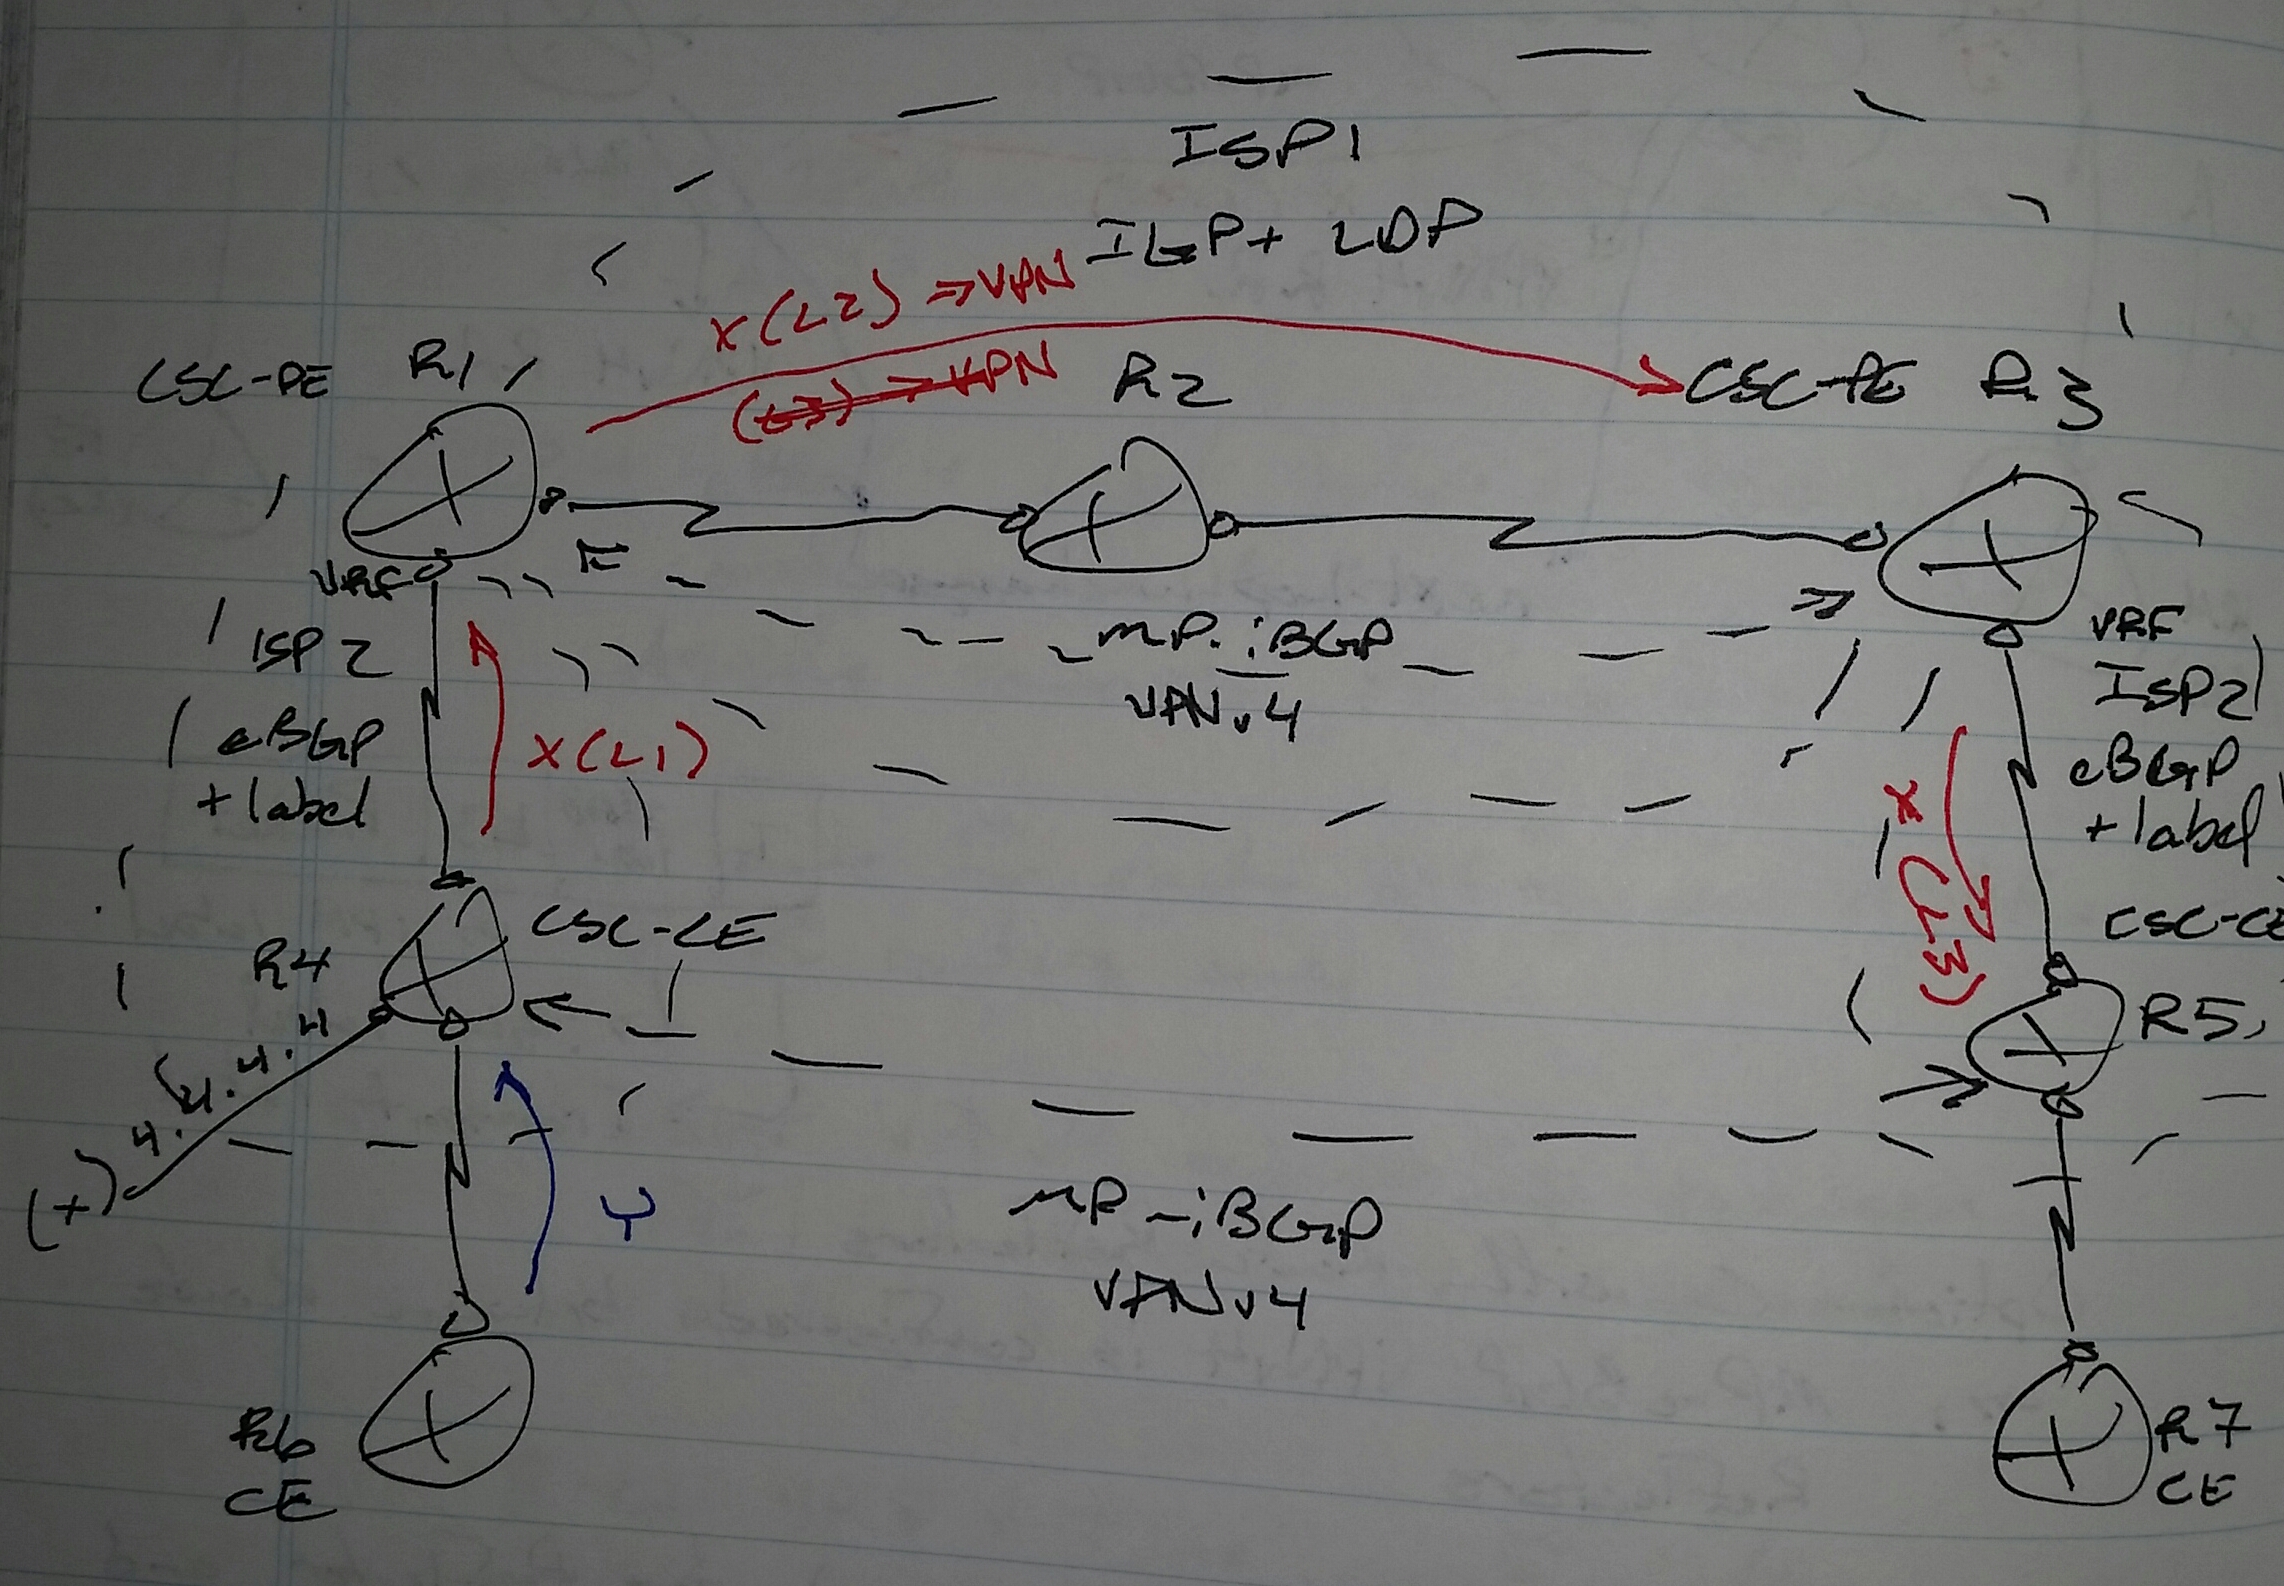 ISP1
IGP + LDP
X(L2) → VPN
(L3) → VPN
CSC-PE R1
R2
CSC-PE R3
VRF
ISP2
eBGP
+ label
X(L1)
MP-iBGP
VPNv4
VRF
ISP2
eBGP
+ label
X (L3)
CSC-CE
R4
CSC-CE
R5
4.4.4.4
(+)
Y
MP-iBGP
VPNv4
R6
CE
R7
CE